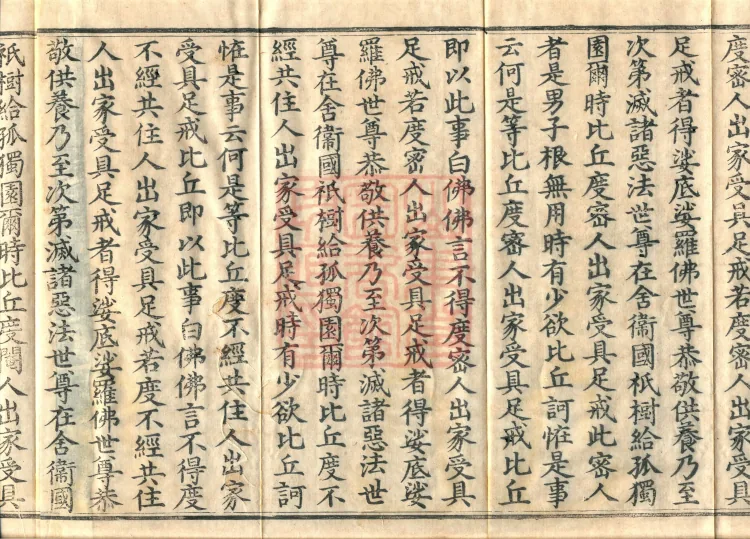 度密人出家受具足戒若度密人出家受具
足戒者得娑底娑羅佛世尊恭敬供養乃至
次第滅諸惡法世尊在舍衞國祇樹給孤獨
園爾時比丘度密人出家受具足戒此密人
者是男子根無用時有少欲比丘訶恠是事
云何是等比丘度密人出家受具足戒比丘
即以此事白佛佛言不得度密人出家受具
足戒若度密人出家受具足戒者得娑底娑
羅佛世尊恭敬供養乃至次第滅諸惡法世
尊在舍衞國祇樹給孤獨園爾時比丘度不
經共住人出家受具足戒時有少欲比丘訶
恠是事云何是等比丘度不經共住人出家
受具足戒比丘即以此事白佛佛言不得度
不經共住人出家受具足戒若度不經共住
人出家受具足戒者得娑底娑羅佛世尊恭
敬供養乃至次第滅諸惡法世尊在舍衞國
祇樹給孤獨園爾時比丘度閹人出家受具